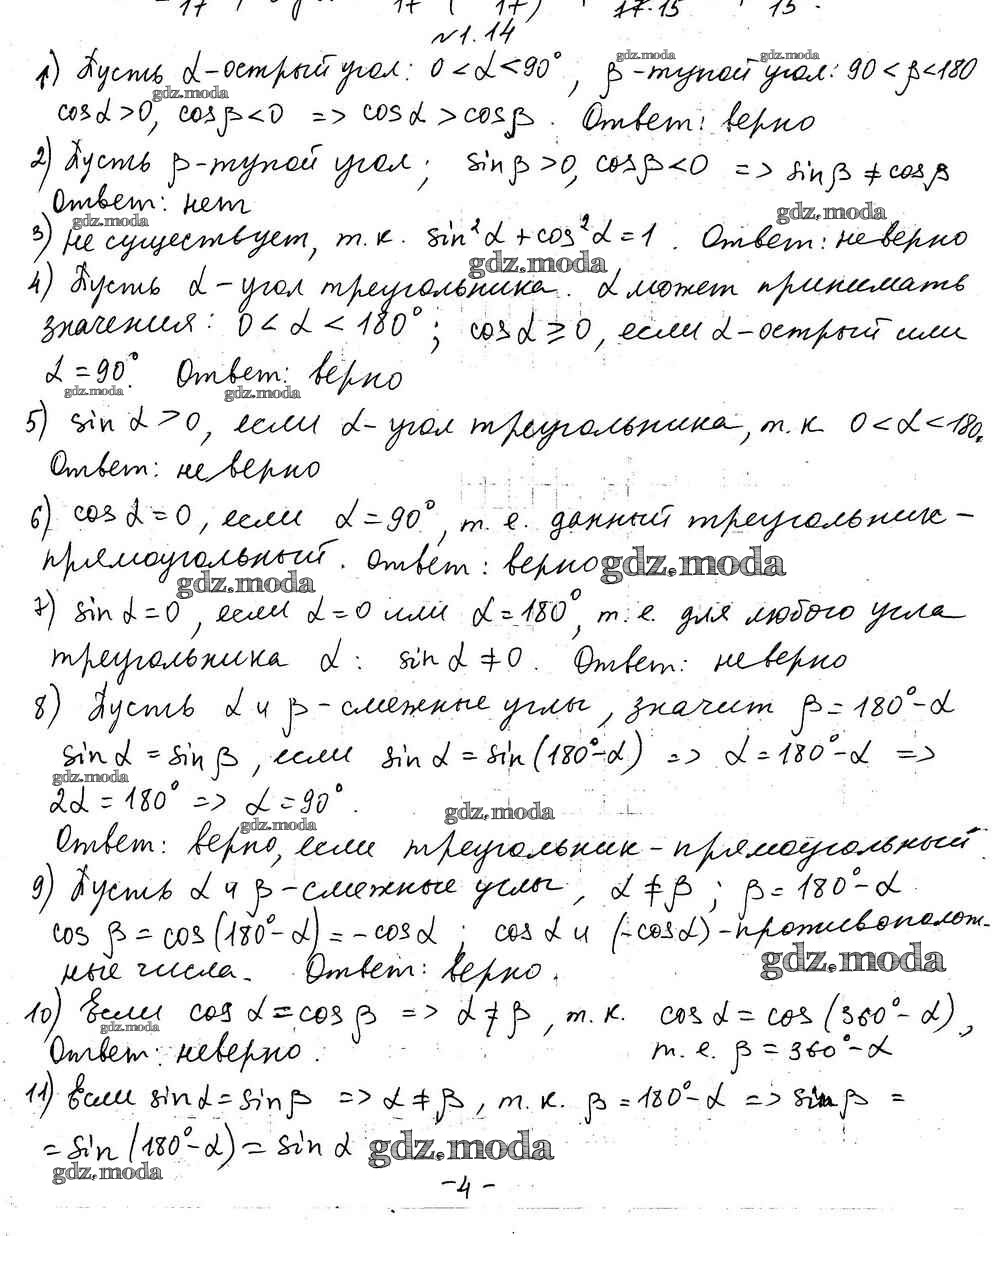 17 17 ( 17) 17·15 15
№1.14
1) Пусть α-острый угол: 0<α<90°, β-тупой угол: 90<β<180
gdz.moda gdz.moda gdz.moda
cosα>0, cosβ<0 => cosα>cosβ. Ответ: верно
2) Пусть β-тупой угол; sinβ>0, cosβ<0 => sinβ≠cosβ
Ответ: нет
gdz.moda gdz.moda
3) Не существует, т.к. sin²α+cos²α=1. Ответ: неверно
gdz.moda
4) Пусть α-угол треугольника. α может принимать
значения: 0<α<180°; cosα≥0, если α-острый или
α=90°. Ответ: верно
gdz.moda gdz.moda
5) sinα>0, если α-угол треугольника, т.к 0<α<180.
Ответ: неверно
6) cosα=0, если α=90°, т.е. данный треугольник-
прямоугольный. Ответ: верно gdz.moda
gdz.moda
7) sinα=0, если α=0 или α=180°, т.е. для любого угла
треугольника α: sinα≠0. Ответ: неверно
8) Пусть α и β-смежные углы, значит β=180°-α
sinα=sinβ, если sinα=sin(180°-α) => α=180°-α =>
gdz.moda
2α=180° => α=90°.
gdz.moda gdz.moda
Ответ: верно, если треугольник-прямоугольный.
9) Пусть α и β-смежные углы, α≠β; β=180°-α
cosβ=cos(180°-α)=-cosα; cosα и (-cosα)-противополож-
ные числа. Ответ: верно.
gdz.moda
10) Если cosα=cosβ => α≠β, т.к. cosα=cos(360°-α),
gdz.moda
Ответ: неверно. т.е. β=360°-α
11) Если sinα=sinβ => α≠β, т.к. β=180°-α => sinβ=
=sin(180°-α)=sinα gdz.moda
gdz.moda
-4-